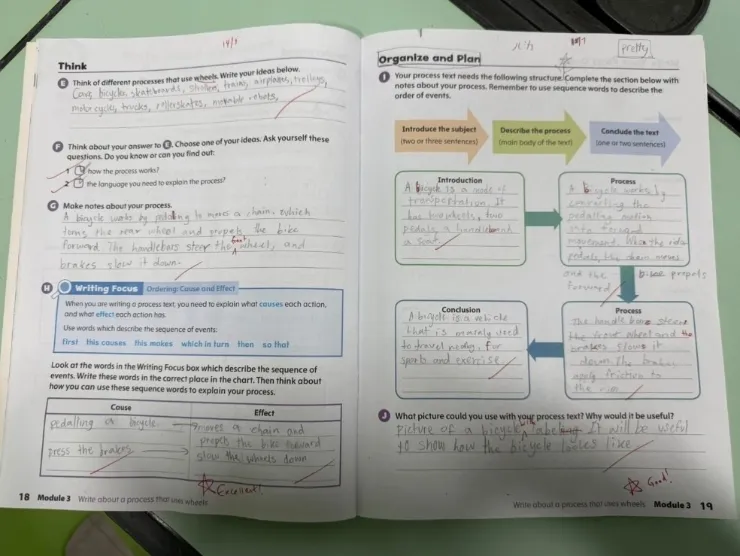 19/1
Think
E Think of different processes that use wheels. Write your ideas below.
Cars, bicycle, skateboards, stroller, trains, airplanes, trolleys,
motorcycles, trucks, rollerskates, movable robots,
F Think about your answer to E. Choose one of your ideas. Ask yourself these
questions. Do you know or can you find out:
1 how the process works?
2 the language you need to explain the process?
G Make notes about your process.
A bicycle works by pedaling to move a chain, which
turns the rear wheel and propels the bike
forward. The handlebars steer the front wheel, and
brakes slow it down.
H Writing Focus Ordering: Cause and Effect
When you are writing a process text, you need to explain what causes each action,
and what effect each action has.
Use words which describe the sequence of events:
first this causes this makes which in turn then so that
Look at the words in the Writing Focus box which describe the sequence of
events. Write these words in the correct place in the chart. Then think about
how you can use these sequence words to explain your process.
Cause Effect
pedalling a bicycle moves a chain and
propels the bike forward
press the brakes slow the wheels down
Excellent!
18 Module 3 Write about a process that uses wheels
pretty
Organize and Plan
I Your process text needs the following structure. Complete the section below with
notes about your process. Remember to use sequence words to describe the
order of events.
Introduce the subject
(two or three sentences)
Describe the process
(main body of the text)
Conclude the text
(one or two sentences)
Introduction
A bicycle is a mode of
transportation. It
has two wheels, two
pedals, a handlebar
a seat
Process
A bicycle works by
converting the
pedalling motion
into forward
movement. When the rider
pedals, the chain moves
and the bike propels
forward
Process
The handle bars steers
the front wheel and the
brakes slows it
down. The brakes
apply friction to
the rim
Conclusion
A bicycle is a vehicle
that is mainly used
to travel nearby, for
sports and exercise
J What picture could you use with your process text? Why would it be useful?
Picture of a bicycle with label It will be useful
to show how the bicycle looks like
Good!
Write about a process that uses wheels Module 3 19